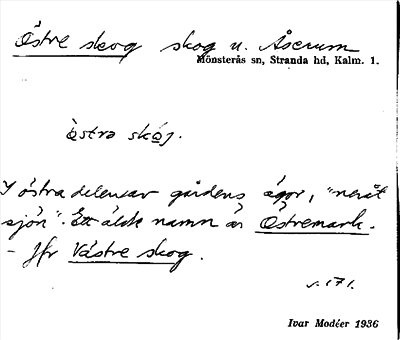 Östre skog skog u. Åserum
Mönsterås sn, Stranda hd, Kalm. l.
östra skoj.
I östra delen av gårdens ägor, "neråt
sjön". Ett äldr namn är Östremark.
- Jfr Västre skog.
s. 171.
Ivar Modéer 1936